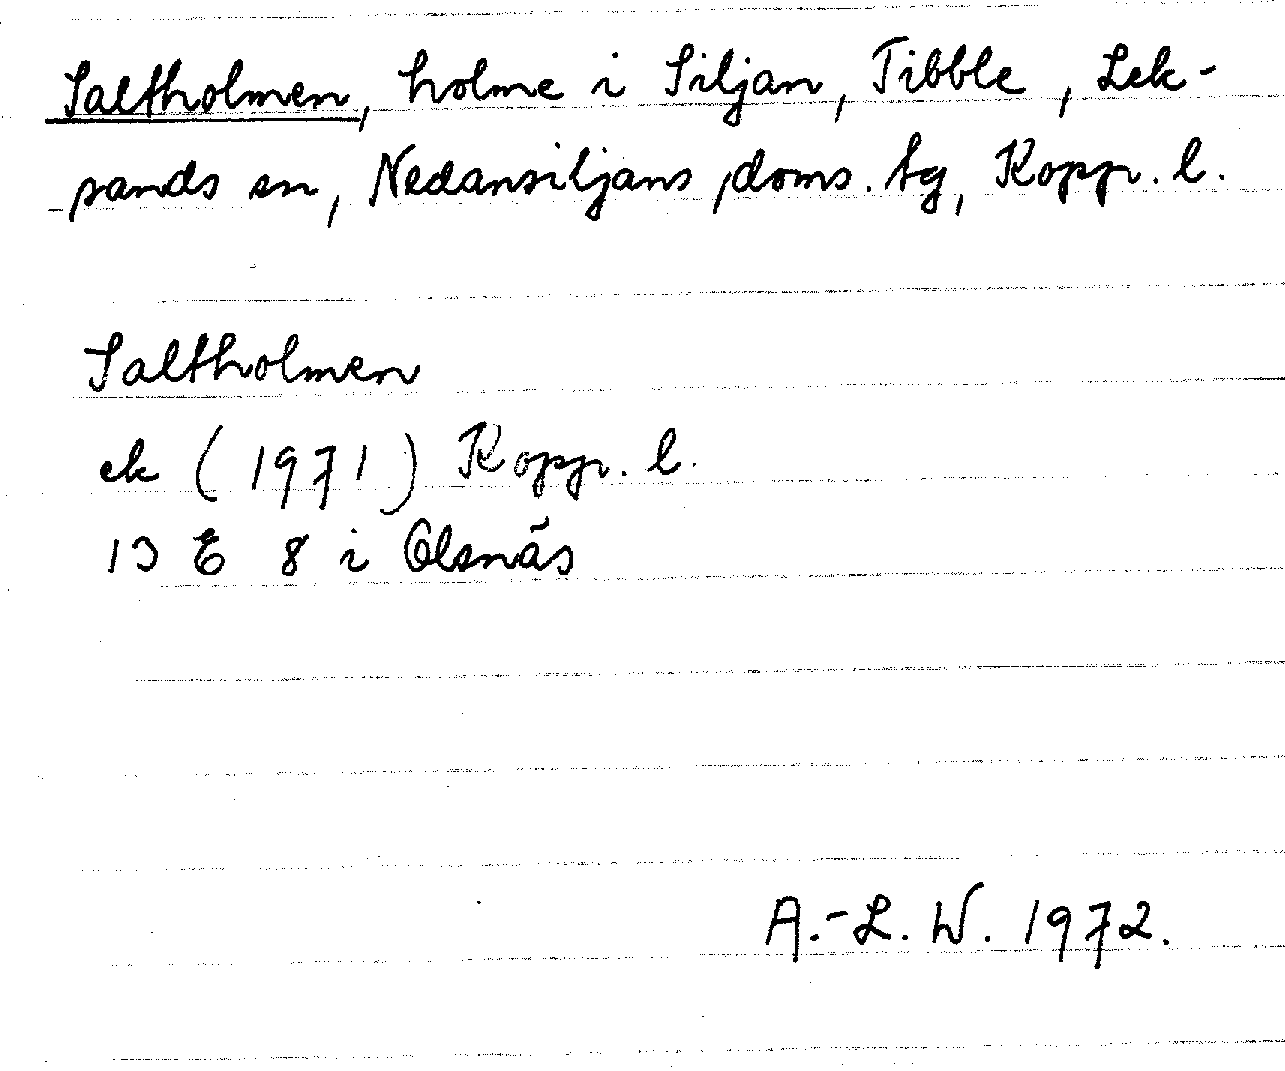 Saltholmen, holme i Siljan, Tibble, Lek-
sands sn, Nedansiljans doms. tg, Kopp. l.
Saltholmen
ek (1971) Kopp. l.
13 E 8 i Olsnäs
A.-L. W. 1972.